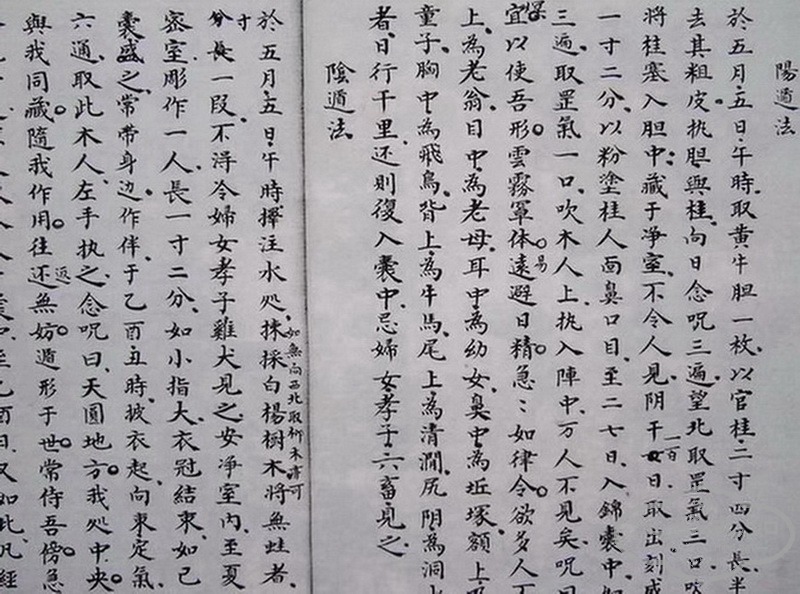 陽遁法
於五月五日午時取黄牛胆一枚以官桂二寸四分長半
去其粗皮执胆與桂向日念呪三遍望北取罡氣三口吹
将桂塞入胆中藏于净室不令人見阴干一百日取出刻成
一寸二分以粉塗桂人面鼻口目至二七日入錦囊中
三遍取罡氣一口吹木人上执入陣中万人不見矣呪曰
宜以使吾形雲霧罩体遠避日精急：如律令欲多人
上為老翁目中為老母耳中為幼女鼻中為坵塚額上
童子胸中為飛鳥背上為牛馬尾上為清澗尻阴為洞
者日行千里还則復入囊中忌婦女孝子六畜見之
陰遁法
於五月五日午時擇注水处抹採白楊樹木将無蛀者
如無向西北取柳木亦可
寸長一段不淂令婦女孝子雞犬見之安净室内至夏
密室彫作一人長一寸二分如小指大衣冠結束如己
囊盛之常带身边作伴于乙酉丑時披衣起向東定氣
六通取此木人左手执之念呪曰天圓地方我处中央
與我同藏隨我作用往还無妨遁形于世常侍吾傍急